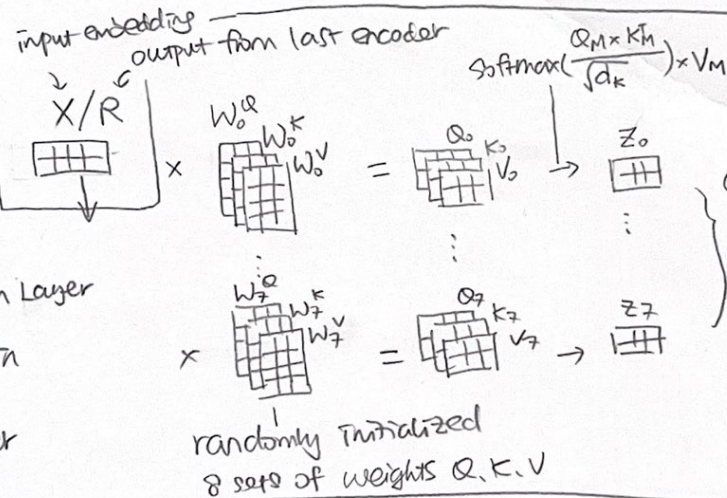 input embedding
output from last encoder
X/R
Softmax(Q_M×K_M^T/√d_K)×V_M
W_0^Q
W_0^K
W_0^V
×
=
Q_0
K_0
V_0
→
Z_0
n Layer
W_7^Q
W_7^K
W_7^V
×
=
Q_7
K_7
V_7
→
Z_7
randomly initialized
8 sets of weights Q.K.V